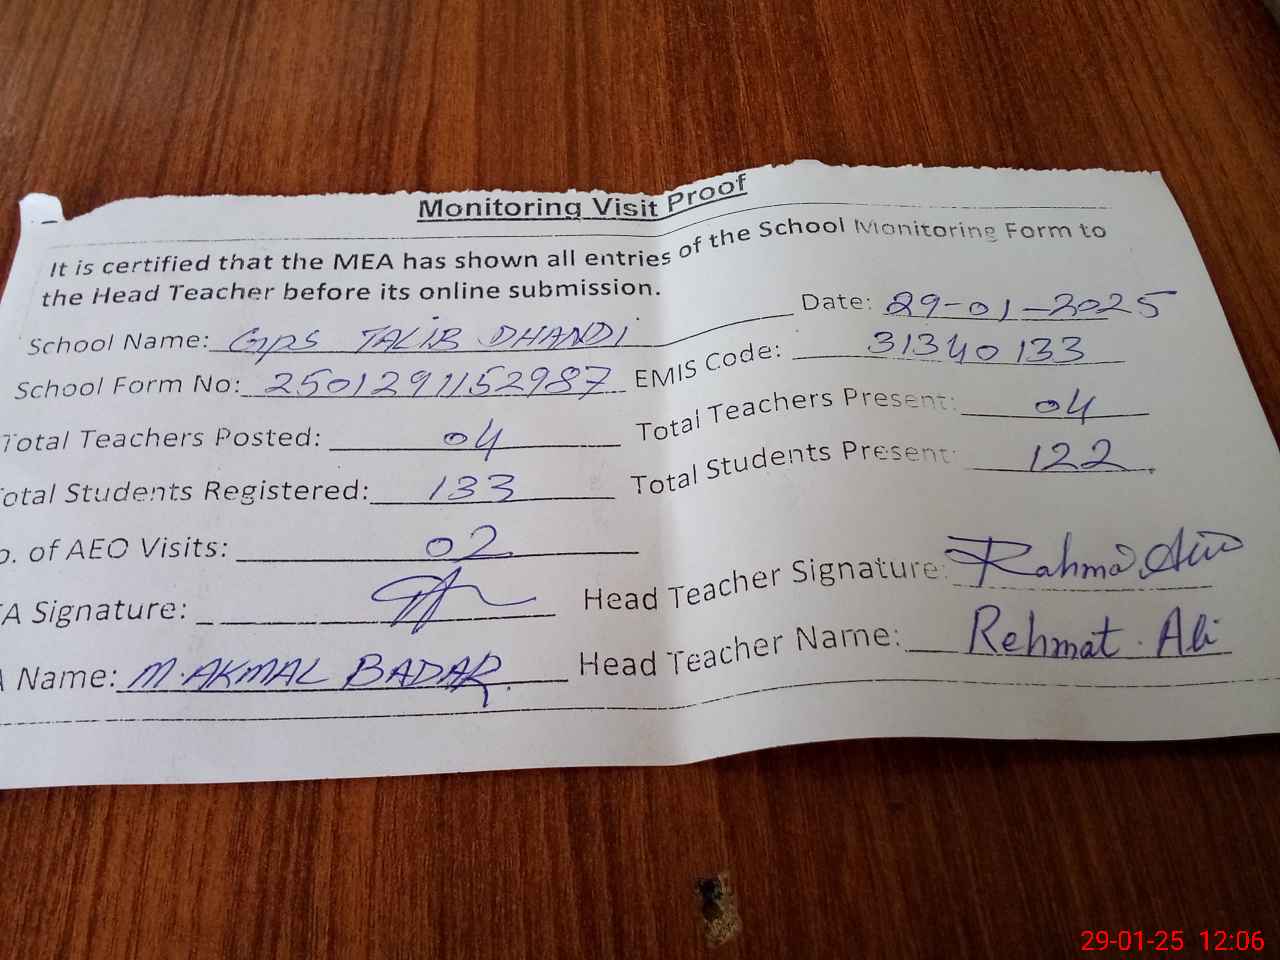 Monitoring Visit Proof
It is certified that the MEA has shown all entries of the School Monitoring Form to
the Head Teacher before its online submission.
Date: 29-01-2025
School Name: GPS TALIB DHANDI
EMIS Code: 31340133
School Form No: 2501291152987
Total Teachers Posted: 04
Total Teachers Present: 04
Total Students Registered: 133
Total Students Present: 122
o. of AEO Visits: 02
A Signature:
Head Teacher Signature:
Name: M. AKMAL BADAR
Head Teacher Name: Rehmat Ali
29-01-25 12:06